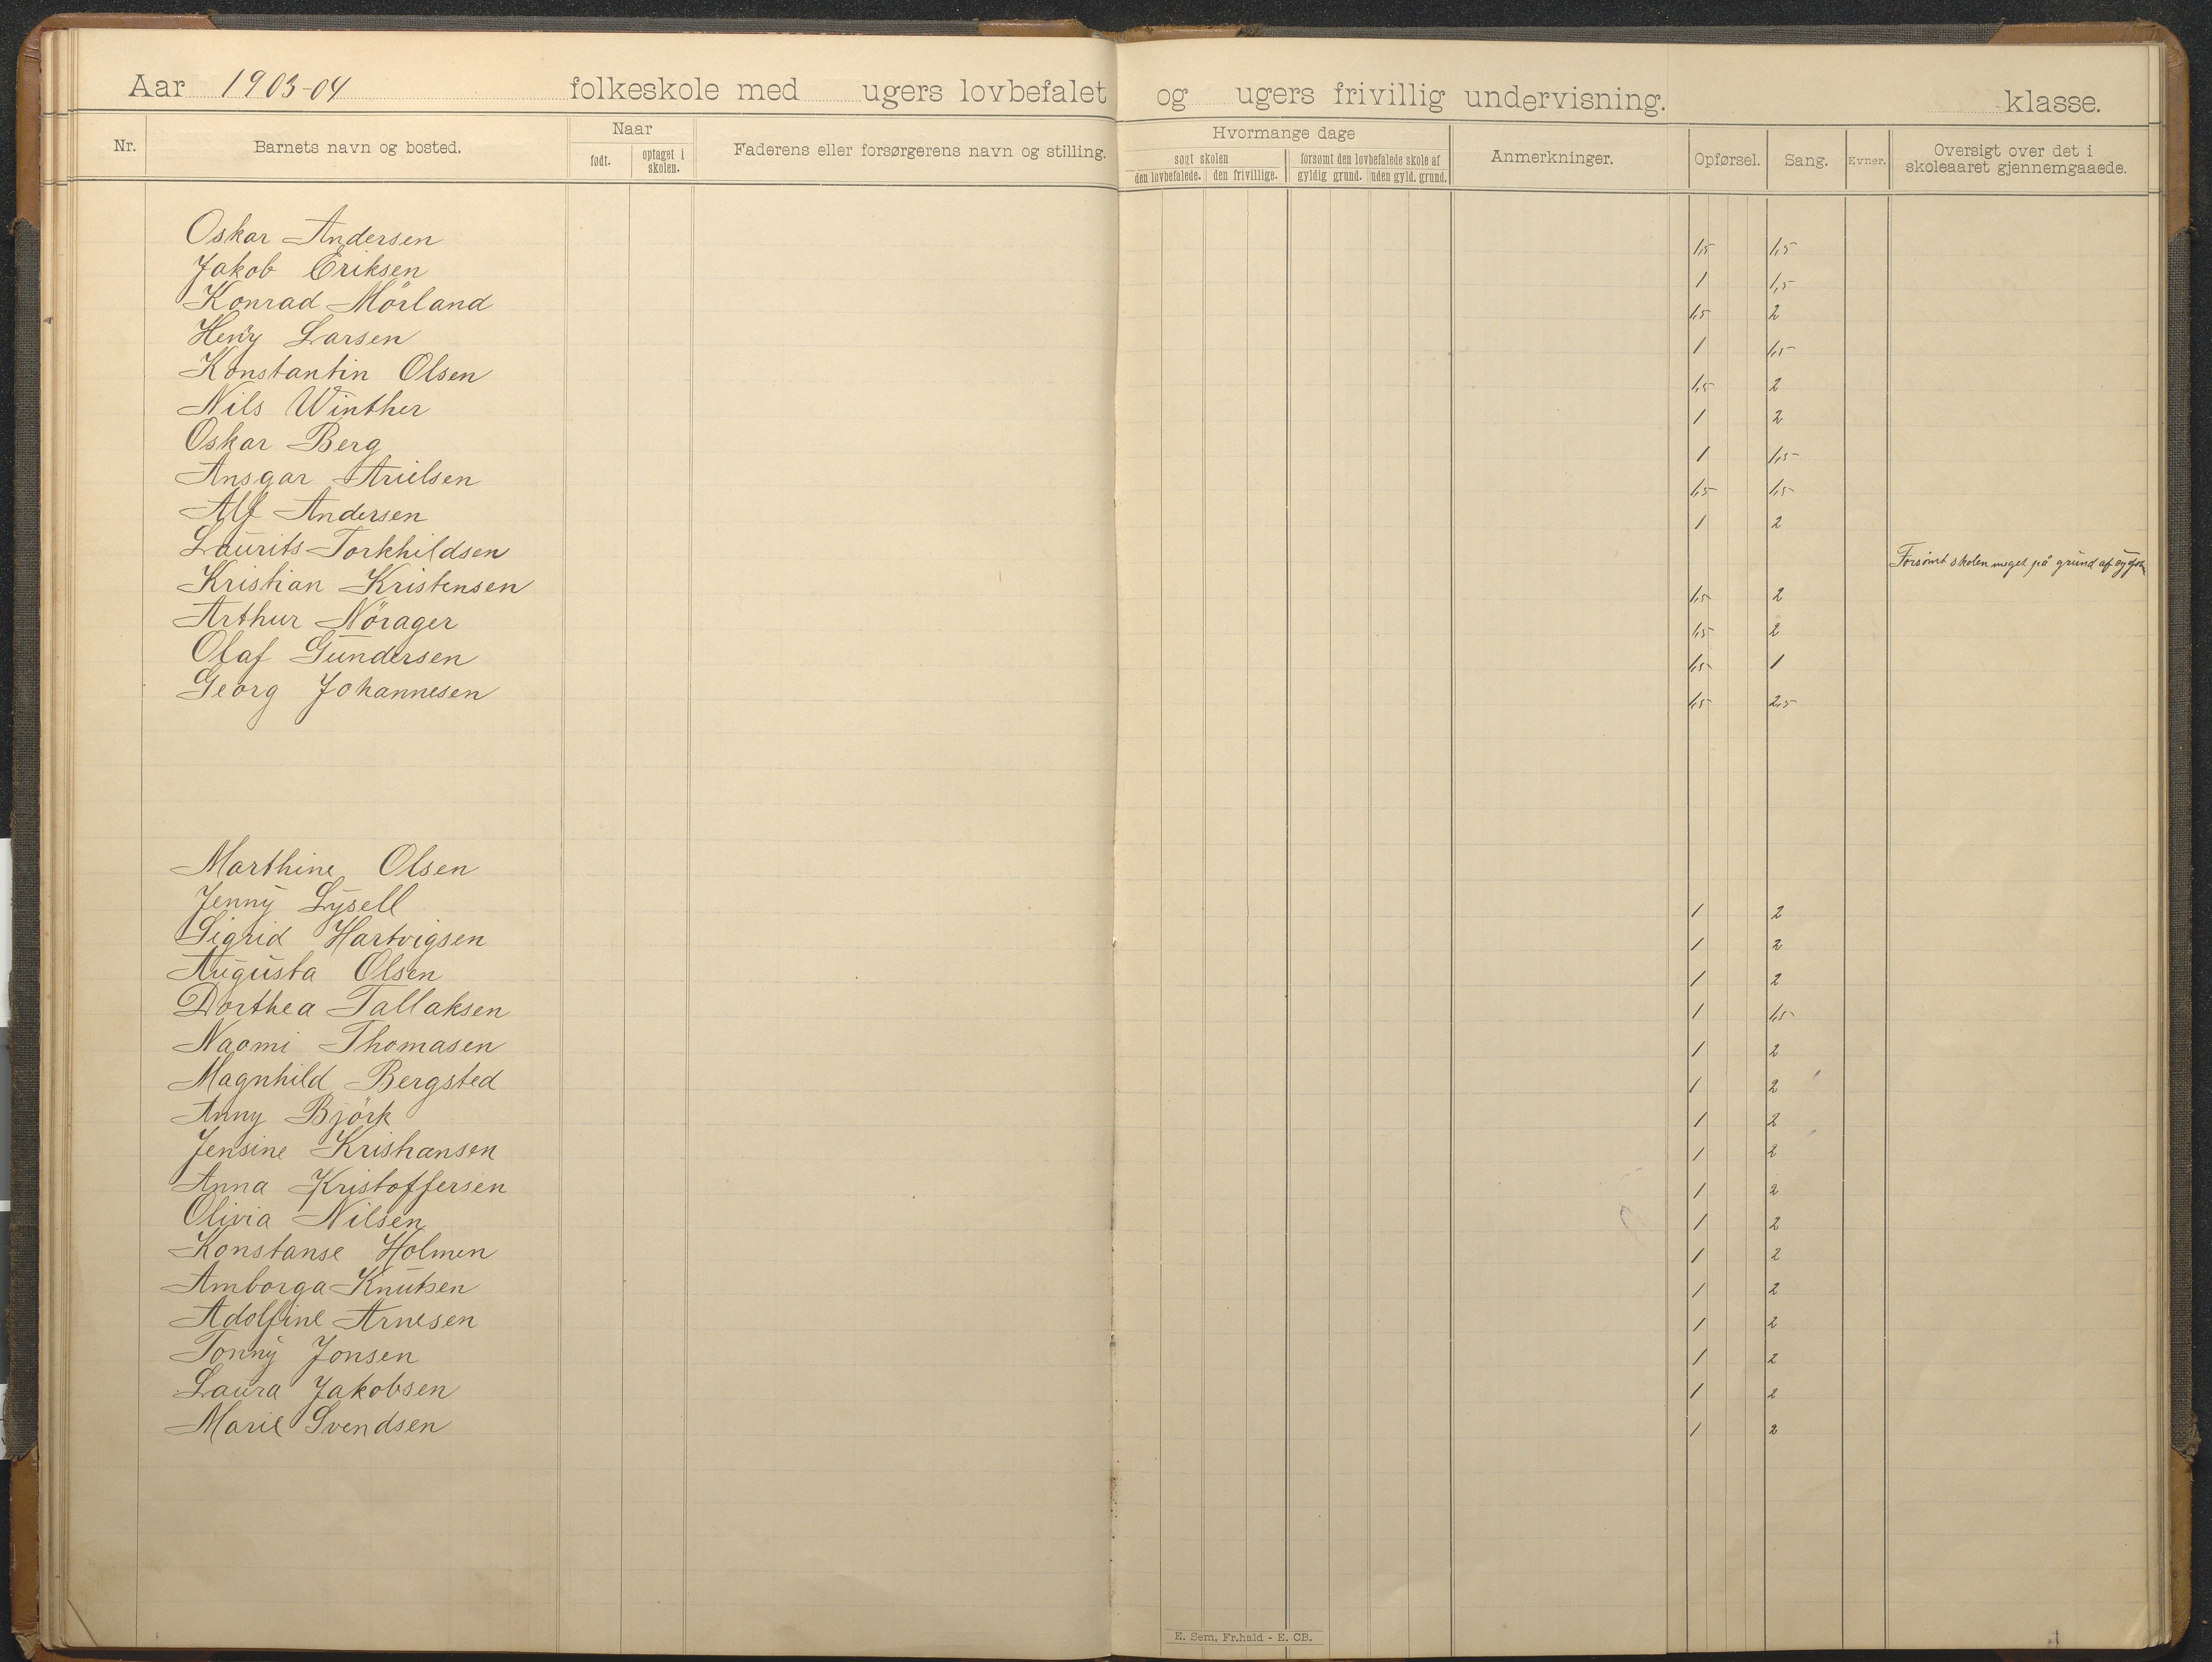 Aar 1903-04 folkeskole med ugers lovbefalet og ugers frivillig undervisning. klasse.
Nr. Barnets navn og bosted. Naar født. optaget i skolen. Faderens eller forsørgerens navn og stilling. Hvormange dage søgt skolen den lovbefalede. den frivillige. forsømt den lovbefalede skole af gyldig grund. uden gyld. grund. Anmerkninger. Opførsel. Sang. Evner. Oversigt over det i skoleaaret gjennemgaaede.
Oskar Andersen 1,5 1,5
Jakob Eriksen 1 1,5
Konrad Mörland 1,5 2
Henry Larsen 1 1,5
Konstantin Olsen 1,5 2
Nils Winther 1 2
Oskar Berg 1 1,5
Ansgar Arielsen 1,5 1,5
Alf Andersen 1 2
Laurits Torkhildsen Forsömt skolen meget på grund af sygdom
Kristian Kristensen 1,5 2
Arthur Nörager 1,5 2
Olaf Gundersen 1,5 1
Georg Johannesen 1,5 2,5
Marthine Olsen
Jenny Lysell 1 2
Sigrid Hartvigsen 1 2
Augusta Olsen 1 2
Dorthea Tallaksen 1 1,5
Naomi Thomasen 1 2
Magnhild Bergsted 1 2
Anny Björk 1 2
Jensine Kristiansen 1 2
Anna Kristoffersen 1 2
Olivia Nilsen 1 2
Konstanse Holmen 1 2
Amborga Knutsen 1 2
Adolfine Arnesen 1 2
Tonny Jonsen 1 2
Laura Jakobsen 1 2
Marie Svendsen 1 2
E. Sem, Fr.hald - E. CB.